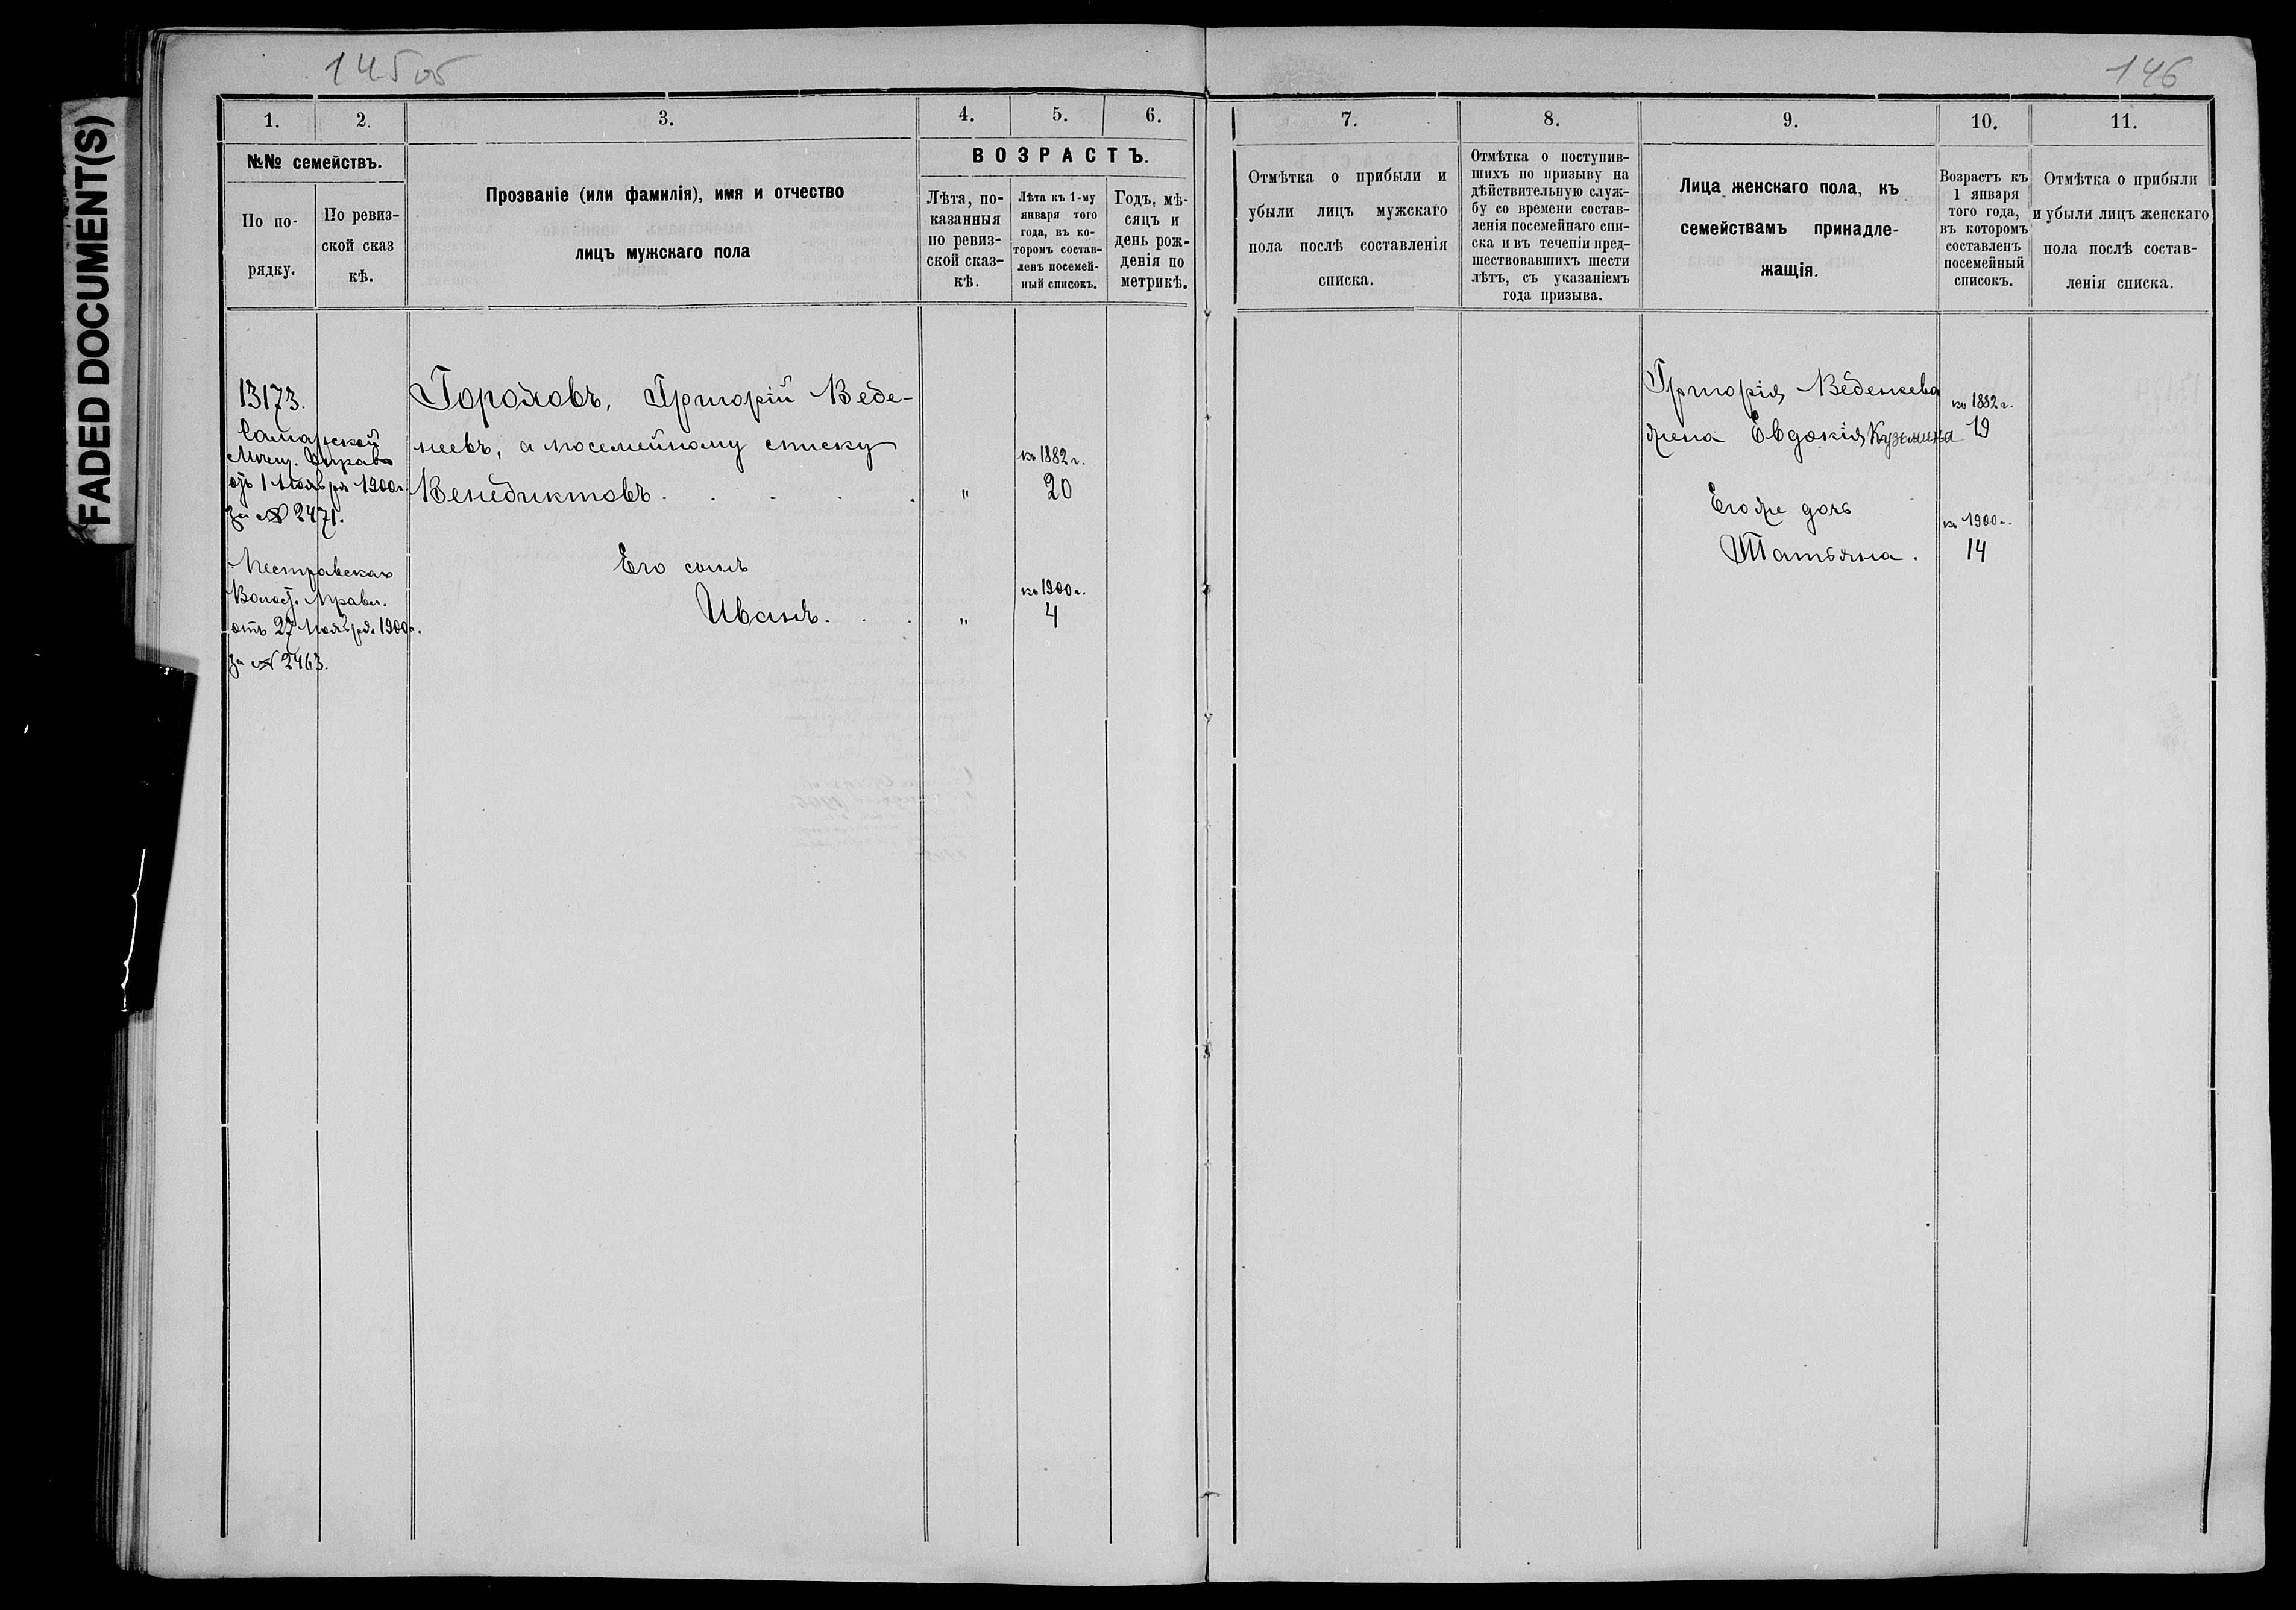 FADED DOCUMENT(S)
145 об
146
1.
2.
3.
4.
5.
6.
№№ семействъ.
По по-
рядку.
По ревиз-
ской сказ
кѣ.
Прозваніе (или фамилія), имя и отчество
лицъ мужскаго пола
ВОЗРАСТЪ.
Лѣта, по-
казанныя
по ревиз-
ской сказ-
кѣ.
Лѣта къ 1-му
января того
года, въ ко-
торомъ состав-
ленъ посемей-
ный списокъ.
Годъ, мѣ-
сяцъ и
день рож-
денія по
метрикѣ.
13173.
Самарской
Мѣщ. Управы
отъ 1 Ноября 1900 г.
за № 2471.
Пестравская
Волост. Правл.
отъ 27 Ноября 1900 г.
за № 2463.
Гороховъ, Григорій Веде-
неевъ, а посемейному списку
Венедиктовъ . . . .
"
къ 1882 г.
20
Его сынъ
Иванъ . . .
"
къ 1900 г.
4
7.
8.
9.
10.
11.
Отмѣтка о прибыли и
убыли лицъ мужскаго
пола послѣ составленія
списка.
Отмѣтка о поступив-
шихъ по призыву на
дѣйствительную служ-
бу со времени состав-
ленія посемейнаго спи-
ска и въ теченіи пред-
шествовавшихъ шести
лѣтъ, съ указаніемъ
года призыва.
Лица женскаго пола, къ
семействамъ принадле-
жащія.
Возрастъ къ
1 января
того года,
въ которомъ
составленъ
посемейный
списокъ.
Отмѣтка о прибыли
и убыли лицъ женскаго
пола послѣ состав-
ленія списка.
Григорія Веденеева
жена Евдокія Кузьмина
къ 1882 г.
19
Его же дочь
Татьяна .
къ 1900 г.
14